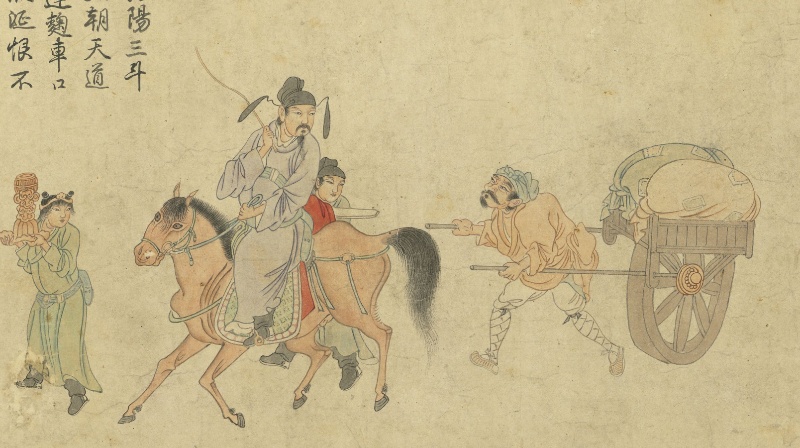 陽三斗
朝天道
逢麴車口
涎恨不